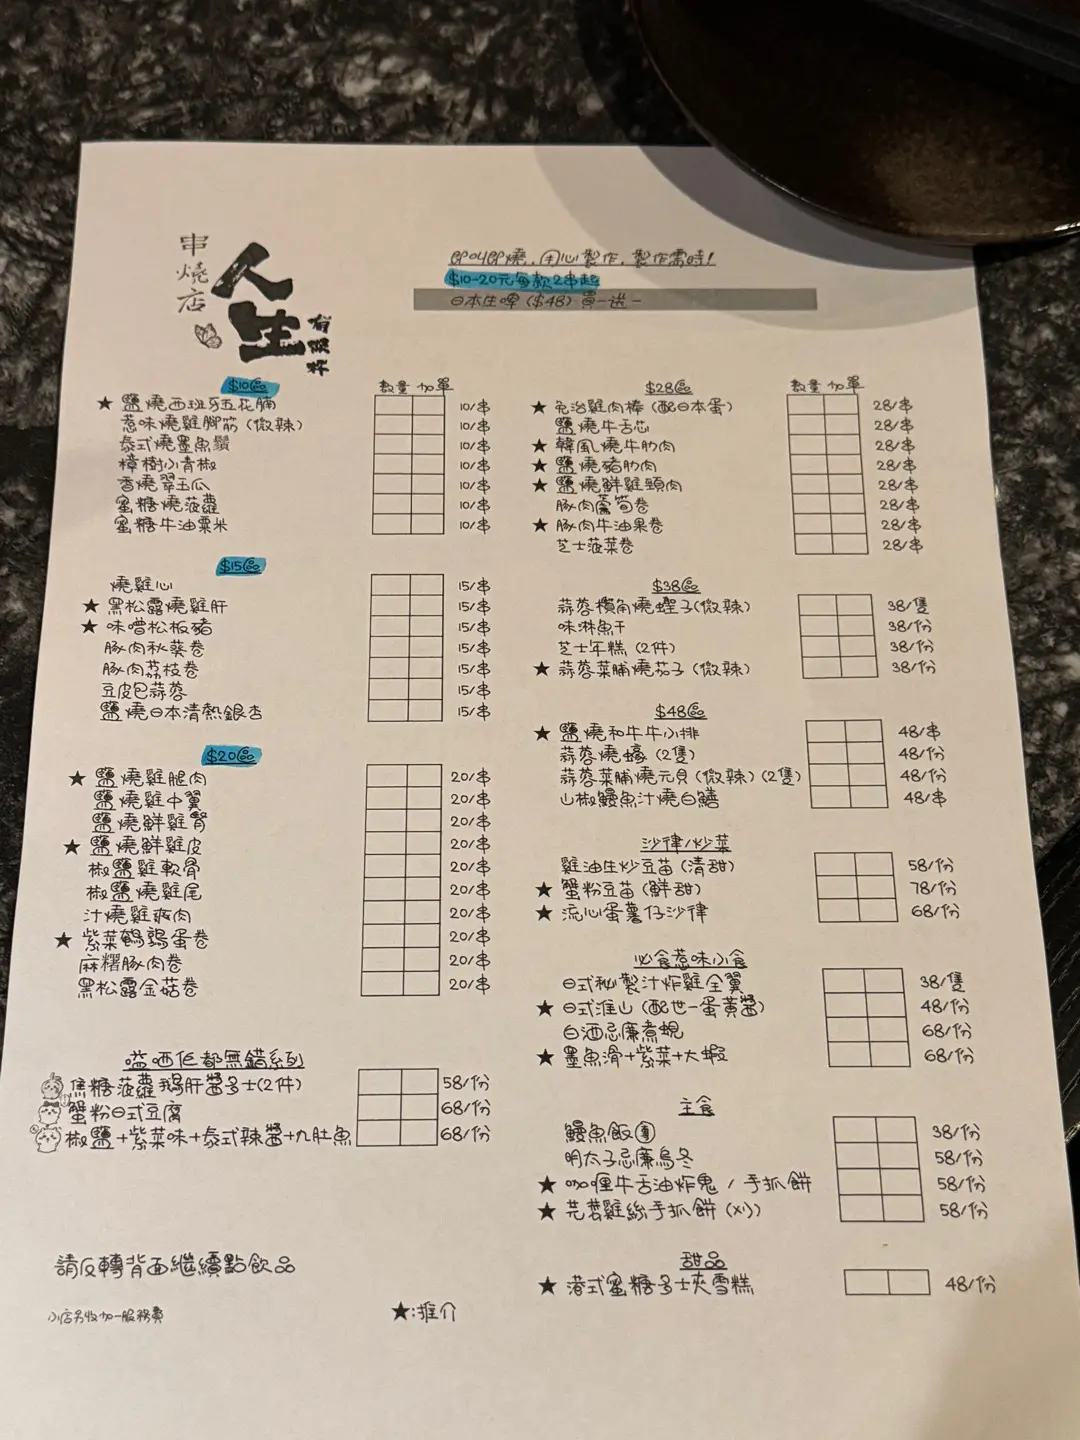 串燒店
人生
有串有杯
即叫即燒，用心製作，製作需時！
$10-20元每款2串起
日本生啤 ($48) 買一送一
$10區
數量 加單
★ 鹽燒西班牙五花腩 10/串
惹味燒雞腳筋 (微辣) 10/串
泰式燒墨魚鬚 10/串
樟樹小青椒 10/串
香燒翠玉瓜 10/串
蜜糖燒菠蘿 10/串
蜜糖牛油粟米 10/串
$15區
燒雞心 15/串
★ 黑松露燒雞肝 15/串
★ 味噌松板豬 15/串
豚肉秋葵卷 15/串
豚肉荔枝卷 15/串
豆皮包蒜蓉 15/串
鹽燒日本清熱銀杏 15/串
$20區
★ 鹽燒雞腿肉 20/串
鹽燒雞中翼 20/串
鹽燒鮮雞腎 20/串
★ 鹽燒鮮雞皮 20/串
椒鹽雞軟骨 20/串
椒鹽燒雞尾 20/串
汁燒雞爽肉 20/串
★ 紫菜鵪鶉蛋卷 20/串
麻糬豚肉卷 20/串
黑松露金菇卷 20/串
嗌晒佢都無錯系列
焦糖菠蘿鵝肝醬多士(2件) 58/份
蟹粉日式豆腐 68/份
椒鹽+紫菜味+泰式辣醬+九肚魚 68/份
請反轉背面繼續點飲品
小店另收加一服務費
★:推介
$28區
數量 加單
★ 免治雞肉棒 (配日本蛋) 28/串
鹽燒牛舌芯 28/串
★ 韓風燒牛肋肉 28/串
★ 鹽燒豬肋肉 28/串
★ 鹽燒鮮雞頸肉 28/串
豚肉蘆筍卷 28/串
★ 豚肉牛油果卷 28/串
芝士菠菜卷 28/串
$38區
蒜蓉欖角燒蟶子(微辣) 38/隻
味淋魚干 38/份
芝士年糕 (2件) 38/份
★ 蒜蓉菜脯燒茄子 (微辣) 38/份
$48區
★ 鹽燒和牛牛小排 48/串
蒜蓉燒蠔 (2隻) 48/份
蒜蓉菜脯燒元貝 (微辣) (2隻) 48/份
山椒鰻魚汁燒白鱔 48/串
沙律/炒菜
雞油生炒豆苗 (清甜) 58/份
★ 蟹粉豆苗 (鮮甜) 78/份
★ 流心蛋薯仔沙律 68/份
必食惹味小食
日式秘製汁炸雞全翼 38/隻
★ 日式淮山 (配世一蛋黃醬) 48/份
白酒忌廉煮蜆 68/份
★ 墨魚滑+紫菜+大蝦 68/份
主食
鰻魚飯 38/份
明太子忌廉烏冬 58/份
★ 咖喱牛舌油炸鬼 / 手抓餅 58/份
★ 芫荽雞絲手抓餅 (刈) 58/份
甜品
★ 港式蜜糖多士夾雪糕 48/份